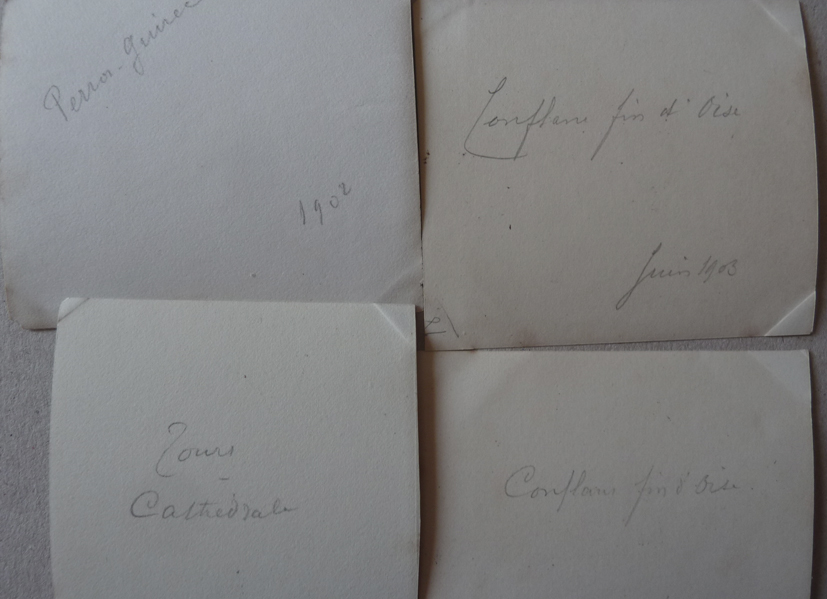 Perros-Guirec
1902
Conflans fin d'Oise
Juin 1903
Tours
-
Cathédrale
Conflans fin d'Oise